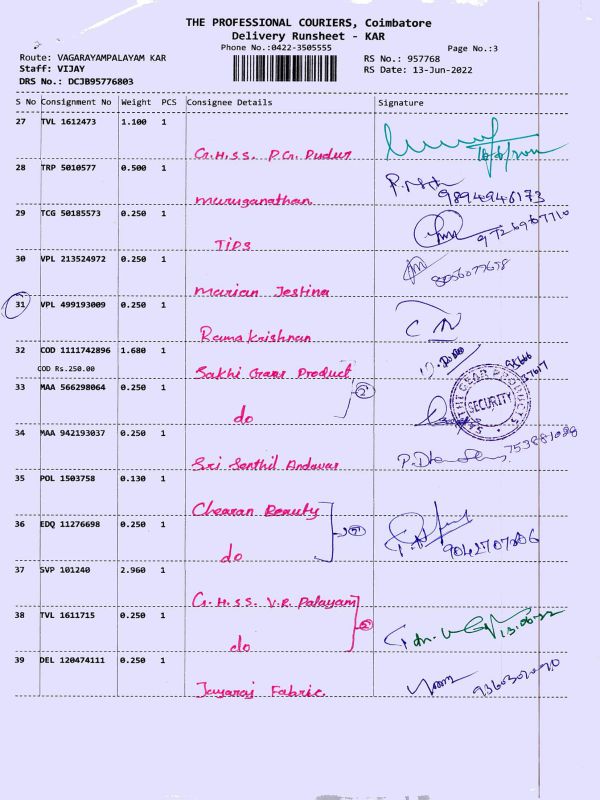 THE PROFESSIONAL COURIERS, Coimbatore
Delivery Runsheet - KAR
Phone No.:0422-3505555
Page No.:3
Route: VAGARAYAMPALAYAM KAR
RS No.: 957768
Staff: VIJAY
RS Date: 13-Jun-2022
DRS No.: DCJB95776803
S No Consignment No Weight PCS Consignee Details Signature
27 TVL 1612473 1.100 1
G.H.S.S. P.G. Pudur
28 TRP 5010577 0.500 1
Muruganathan
9894946173
29 TCG 50185573 0.250 1
TIPS
30 VPL 213524972 0.250 1
Marian Jestina
31 VPL 499193009 0.250 1
Ramakrishnan
32 COD 1111742896 1.680 1
COD Rs.250.00
Sakhi Gear Product
33 MAA 566298064 0.250 1
do
2
GEAR PRODUCTS
SECURITY
34 MAA 942193037 0.250 1
Sri Senthil Andavar
35 POL 1503758 0.130 1
Chearan Beauty
36 EDQ 11276698 0.250 1
do
9042707206
37 SVP 101240 2.960 1
G.H.S.S. V.R. Palayam
38 TVL 1611715 0.250 1
do
13.06.22
39 DEL 120474111 0.250 1
Jayaraj Fabric